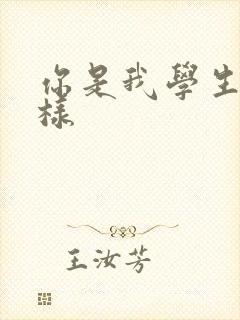 你是我學生
樣
王汝芳